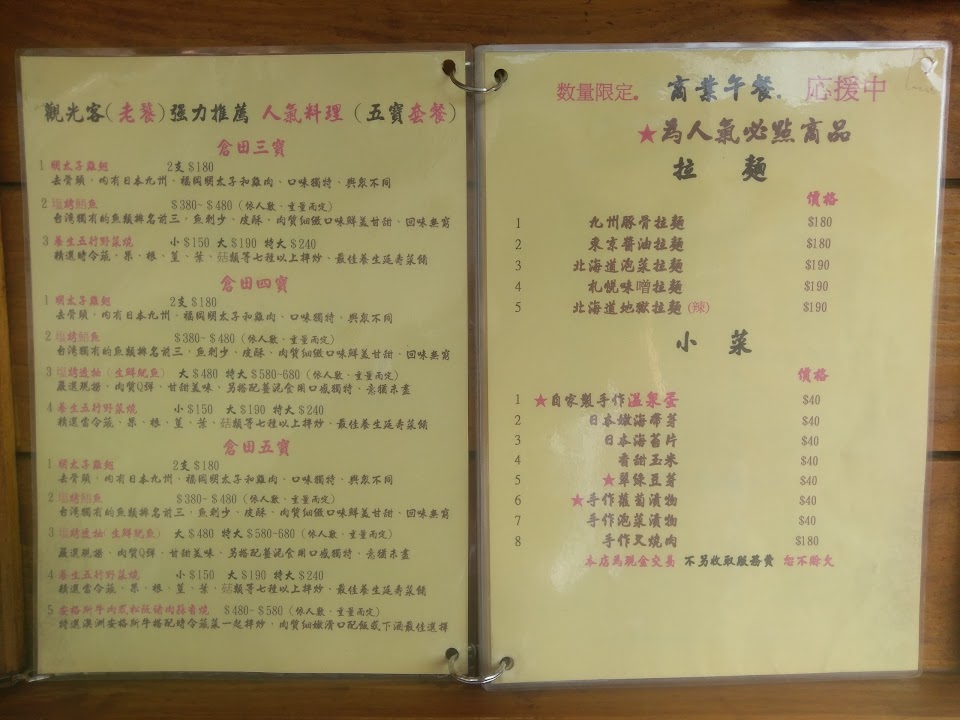 觀光客(老饕)强力推薦 人氣料理 (五寶套餐)
倉田三寶
1 明太子雞翅 2支$180
去骨頭、內有日本九州、福岡明太子和雞肉、口味獨特、與眾不同
2 塩烤鯃魚 $380~$480 (依人數、重量而定)
台湾獨有的魚類排名前三、魚刺少、皮酥、肉質細緻口味鮮美甘甜、回味無窮
3 養生五行野菜燒 小$150 大$190 特大$240
精選時令蔬、果、根、莖、葉、菇類等七種以上拌炒、最佳養生延寿菜餚
倉田四寶
1 明太子雞翅 2支$180
去骨頭、內有日本九州、福岡明太子和雞肉、口味獨特、與眾不同
2 塩烤 魚 $380~$480 (依人數、重量而定)
台湾獨有的魚類排名前三、魚刺少、皮酥、肉質細緻口味鮮美甘甜、回味無窮
3 塩烤透抽(生鮮魷魚) 大$480 特大$580~680 (依人數、重量而定)
嚴選現撈、肉質Q彈、甘甜美味、另搭配薑泥食用口感獨特、意猶未盡
4 養生五行野菜燒 小$150 大$190 特大$240
精選當令蔬、果、根、莖、葉、菇類等七種以上拌炒、最佳養生延寿菜餚
倉田五寶
1 明太子雞翅 2支$180
去骨頭、內有日本九州、福岡明太子和雞肉、口味獨特、與眾不同
2 塩烤 魚 $380~$480 (依人數、重量而定)
台湾獨有的魚類排名前三、魚刺少、皮酥、肉質細緻口味鮮美甘甜、回味無窮
3 塩烤透抽(生鮮魷魚) 大$480 特大$580~680 (依人數、重量而定)
嚴選現撈、肉質Q彈、甘甜美味、另搭配薑泥食用口感獨特、意猶未盡
4 養生五行野菜燒 小$150 大$190 特大$240
精選當令蔬、果、根、莖、葉、菇類等七種以上拌炒、最佳養生延寿菜餚
5 安格斯牛肉或松阪豬肉蒜香燒 $480~$580 (依人數、重量而定)
特選澳洲安格斯牛搭配時令蔬菜一起拌炒、肉質細嫩滑口配飯或下酒最佳選擇
数量限定。 商業午餐。 応援中
★為人氣必點商品
拉 麵
價格
1 九州豚骨拉麵 $180
2 東京醬油拉麵 $180
3 北海道泡菜拉麵 $190
4 札幌味噌拉麵 $190
5 北海道地獄拉麵(辣) $190
小 菜
價格
1 ★自家製手作溫泉蛋 $40
2 日本嫩海帶芽 $40
3 日本海苔片 $40
4 香甜玉米 $40
5 ★翠綠豆芽 $40
6 ★手作蘿蔔漬物 $40
7 手作泡菜漬物 $40
8 手作叉燒肉 $180
本店為現金交易 不另收取服務費 恕不賒欠